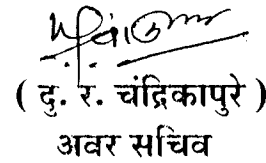 ( दु. र. चंद्रिकापुरे )
अवर सचिव